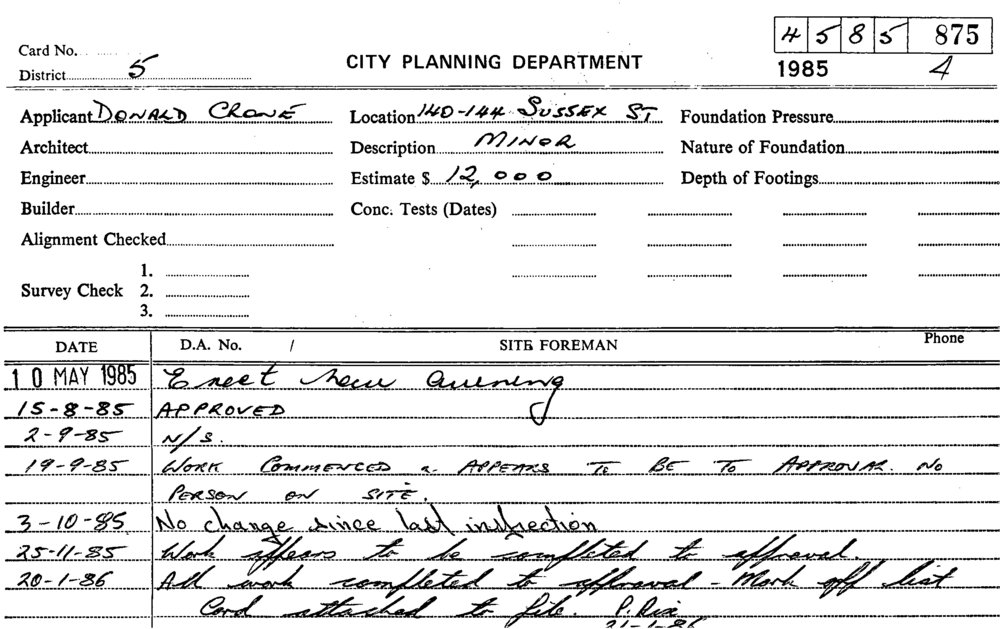 4 5 8 5 875
Card No.
District 5
CITY PLANNING DEPARTMENT
1985 4
Applicant DONALD CRONE Location 140-144 SUSSEX ST Foundation Pressure
Architect Description MINOR Nature of Foundation
Engineer Estimate $ 12,000 Depth of Footings
Builder Conc. Tests (Dates)
Alignment Checked
1.
Survey Check 2.
3.
DATE D.A. No. / SITE FOREMAN Phone
10 MAY 1985 Erect new awning
15-8-85 APPROVED
2-9-85 N/S.
19-9-85 WORK COMMENCED & APPEARS TO BE TO APPROVAL. NO
PERSON ON SITE.
3-10-85 No change since last inspection
25-11-85 Work appears to be completed to approval.
20-1-86 All work completed to approval - Mark off list
Card attached to file. P. Rix
21-1-86